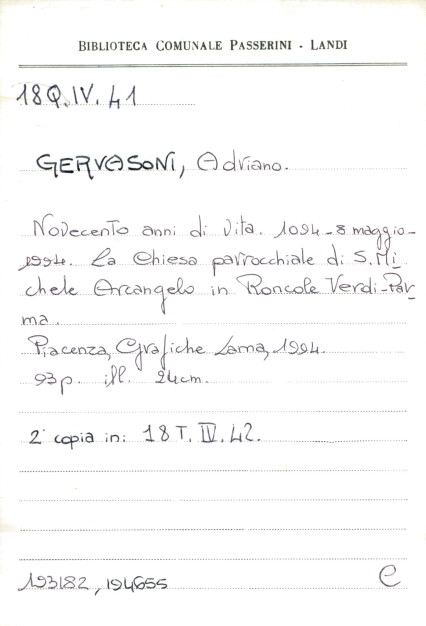 BIBLIOTECA COMUNALE PASSERINI - LANDI
18Q.IV.41
GERVASONI, Adriano.
Novecento anni di vita. 1094-8 maggio-
1994. La Chiesa parrocchiale di S. Mi
chele Arcangelo in Roncole Verdi-Par
ma.
Piacenza, Grafiche Lama, 1994.
93p. ill. 24cm.
2ª copia in: 18 T. IV. 42.
193182, 194655
e